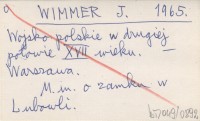 WIMMER J. 1965.
Wojsko polskie w drugiej
połowie XVII wieku. –
Warszawa.
M.in. o zamku w
Lubowli.